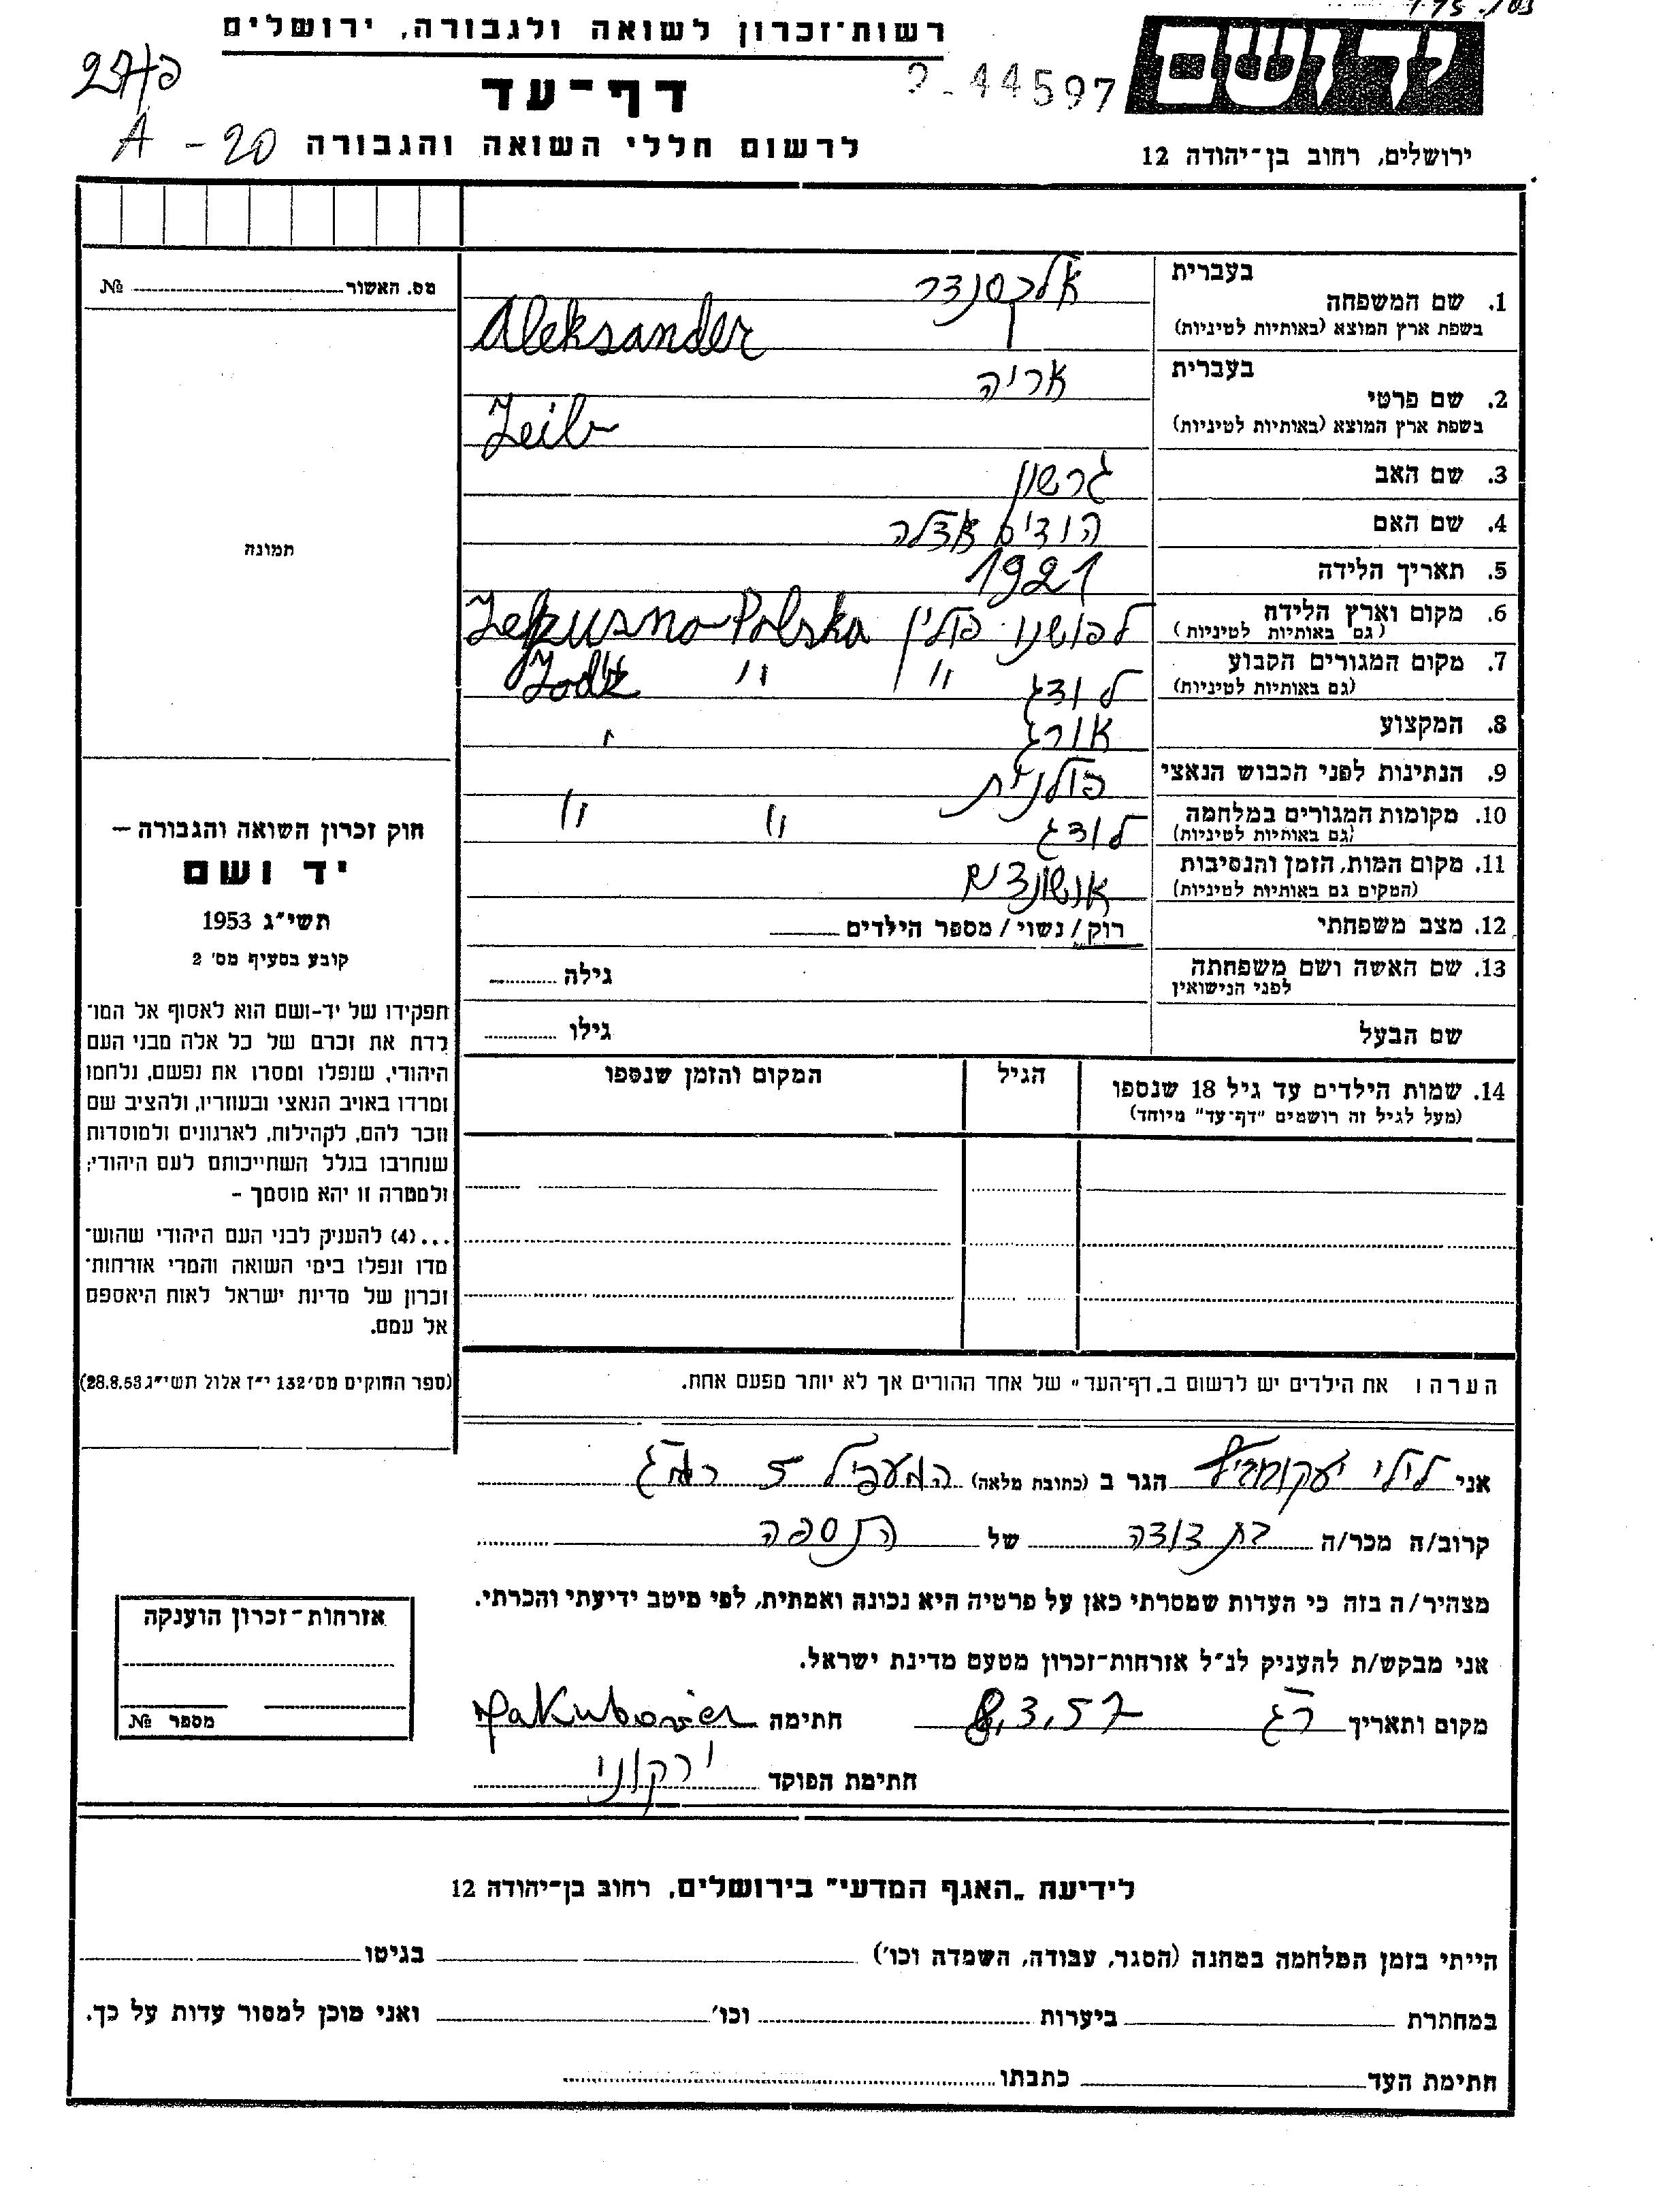 רשות־זכרון לשואה ולגבורה, ירושלים
דף־עד
44597
לרשום חללי השואה והגבורה
A - 20
יד ושם
ירושלים, רחוב בן־יהודה 12
בעברית אלכסנדר
1. שם המשפחה
בשפת ארץ המוצא (באותיות לטיניות) Aleksander
בעברית אריה
2. שם פרטי
בשפת ארץ המוצא (באותיות לטיניות) Leib
3. שם האב גרשון
4. שם האם
5. תאריך הלידה 1921
6. מקום וארץ הלידה פולין Polska
(גם באותיות לטיניות)
7. מקום המגורים הקבוע לודג " " Lodz
(גם באותיות לטיניות)
8. המקצוע אורג
9. הנתינות לפני הכבוש הנאצי פולנית
10. מקומות המגורים במלחמה לודג " "
(גם באותיות לטיניות)
11. מקום המות, הזמן והנסיבות
(המקום גם באותיות לטיניות)
12. מצב משפחתי רוק/נשוי/מספר הילדים
13. שם האשה ושם משפחתה גילה
לפני הנישואין
שם הבעל גילו
14. שמות הילדים עד גיל 18 שנספו הגיל המקום והזמן שנספו
(מעל לגיל זה רושמים "דף־עד" מיוחד)
הערה: את הילדים יש לרשום ב„דף־העד" של אחד ההורים אך לא יותר מפעם אחת.
מס. האשור №
תמונה
חוק זכרון השואה והגבורה –
יד ושם
תשי"ג 1953
קובע בסעיף מס' 2
תפקידו של יד-ושם הוא לאסוף אל המו־
לדת את זכרם של כל אלה מבני העם
היהודי, שנפלו ומסרו את נפשם, נלחמו
ומרדו באויב הנאצי ובעוזריו, ולהציב שם
וזכר להם, לקהילות, לארגונים ולמוסדות
שנחרבו בגלל השתייכותם לעם היהודי;
ולמטרה זו יהא מוסמך –
...(4) להעניק לבני העם היהודי שהוש־
מדו ונפלו בימי השואה והמרי אזרחות־
זכרון של מדינת ישראל לאות היאספם
אל עמם.
(ספר החוקים מס' 132 י"ז אלול תשי"ג 28.8.53)
אני לילי יעקובוביץ הגר ב (כתובת מלאה) המעפיל 5
קרוב/ה מכר/ה בת דודה של הנספה
מצהיר/ה בזה כי העדות שמסרתי כאן על פרטיה היא נכונה ואמתית, לפי מיטב ידיעתי והכרתי.
אני מבקש/ת להעניק לנ"ל אזרחות־זכרון מטעם מדינת ישראל.
מקום ותאריך רג 8.3.57 חתימה
חתימת הפוקד ירקוני
אזרחות־זכרון הוענקה
מספר №
לידיעת „האגף המדעי" בירושלים, רחוב בן־יהודה 12
הייתי בזמן המלחמה במחנה (הסגר, עבודה, השמדה וכו') בגיטו
במחתרת ביערות וכו' ואני מוכן למסור עדות על כך.
חתימת העד כתבתו